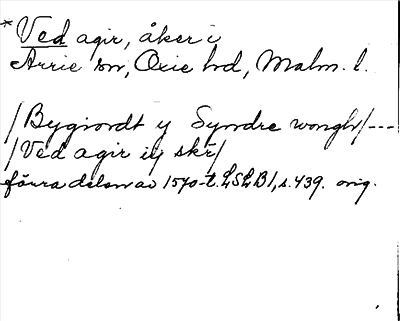 *Ved agir, åker i
Arrie sn, Oxie hd, Malm. l.
/Bygiordt y Syndre wongh/---
/Ved agir iiij skr/
förra delen av 1570-t. LSLB1, s. 439. orig.